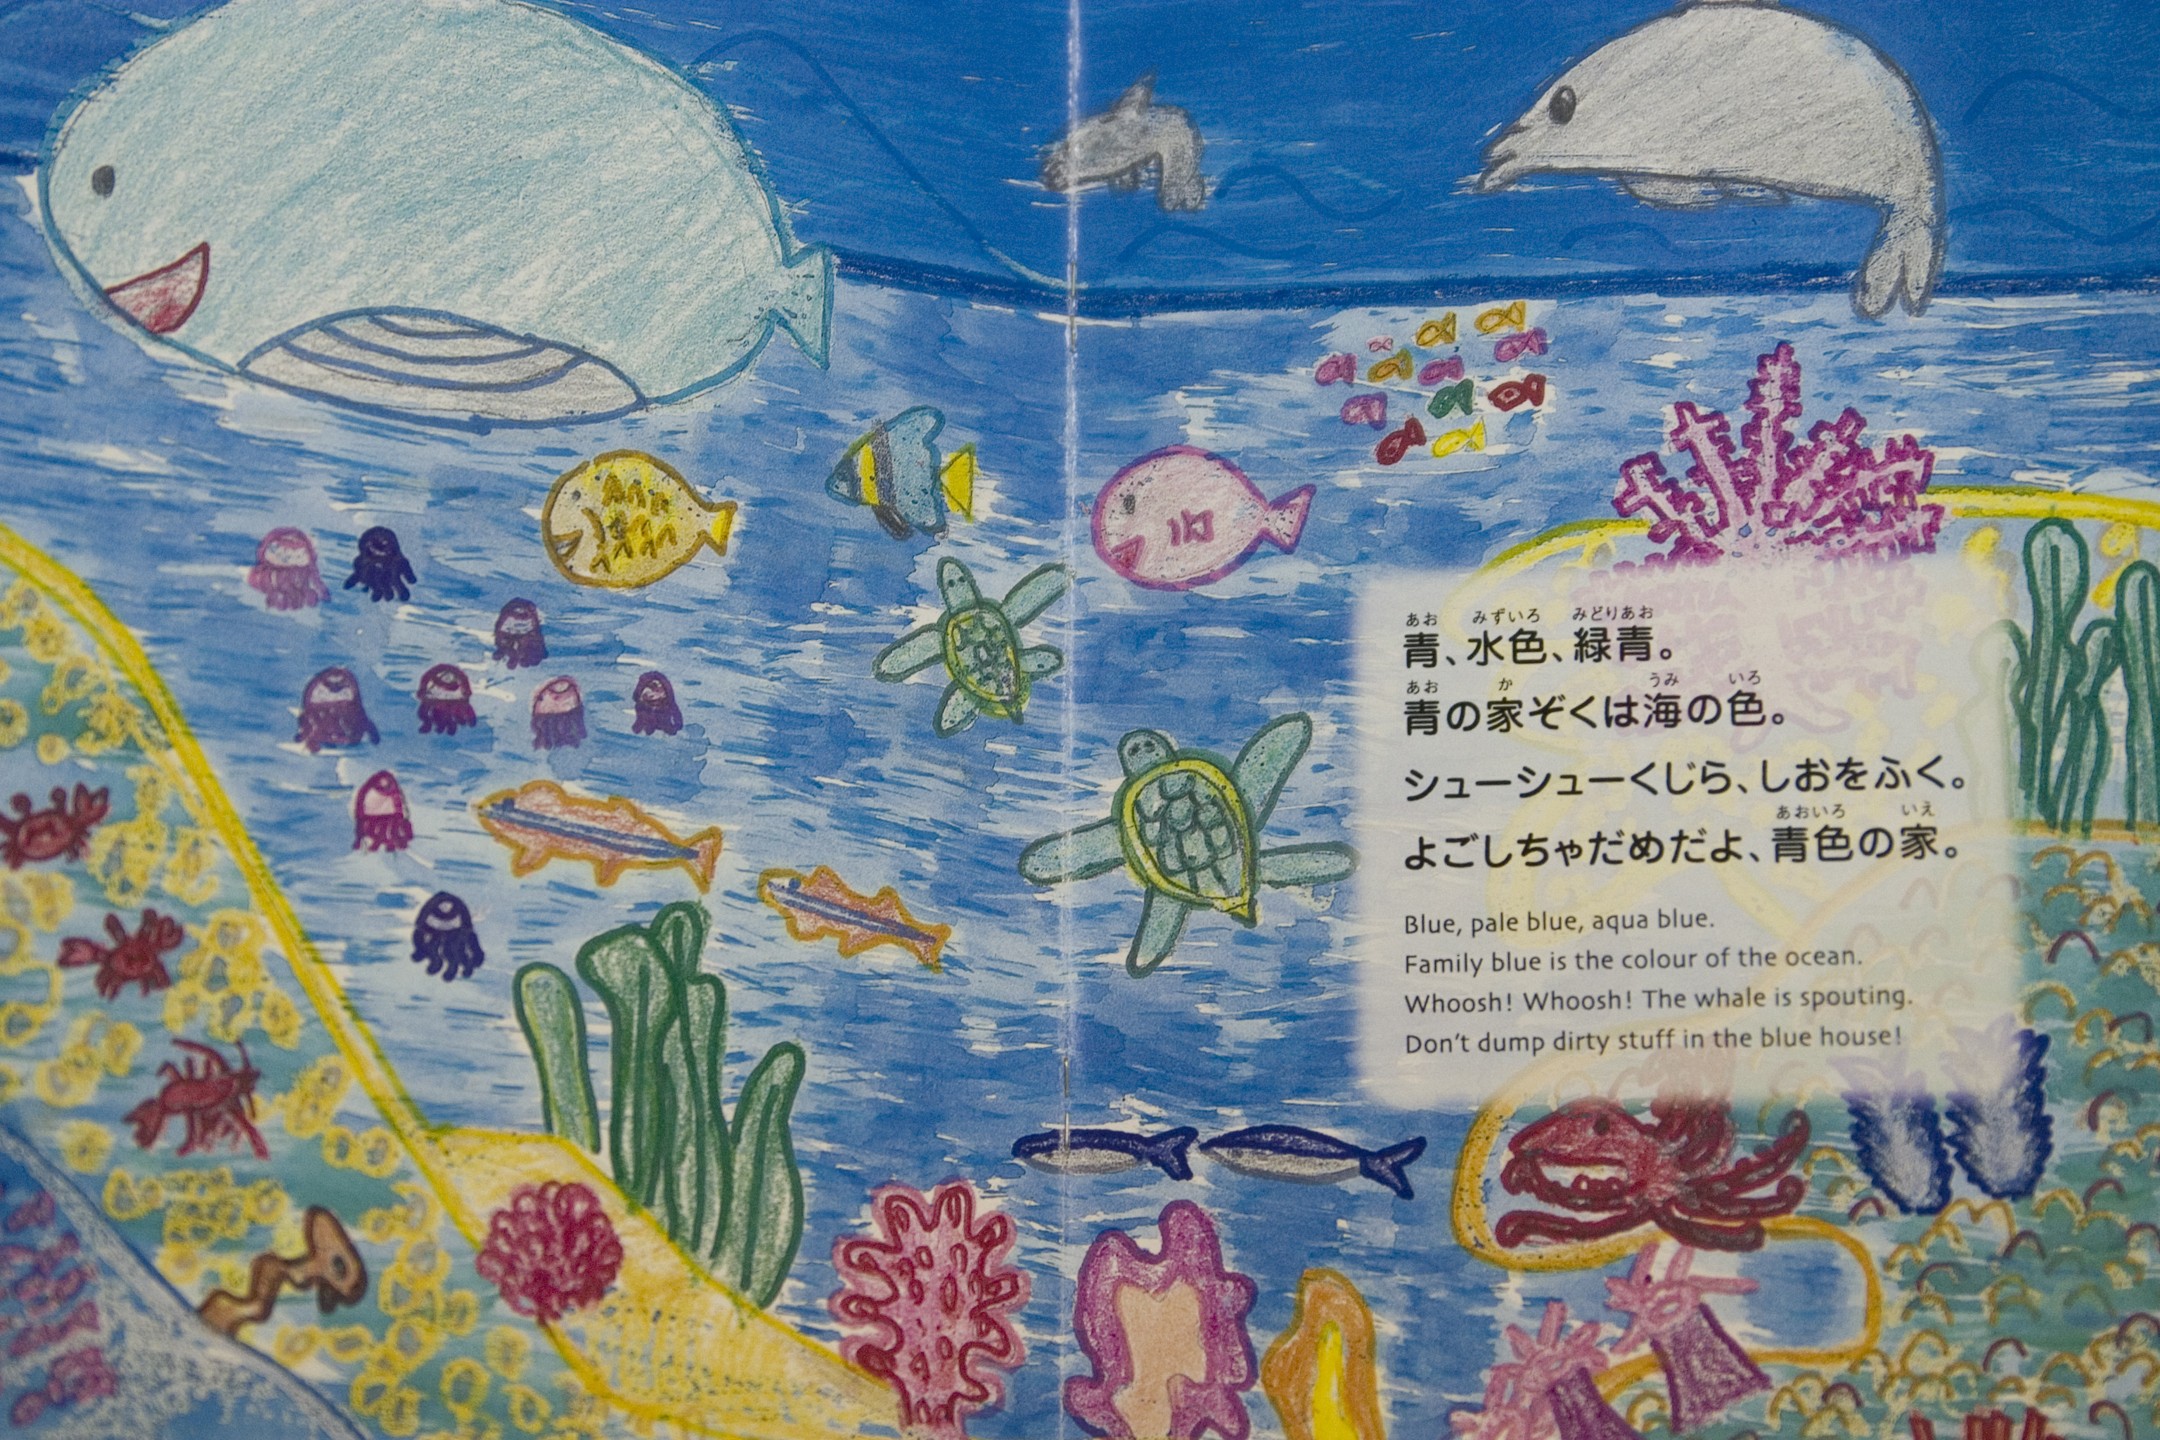 あお みずいろ みどりあお
青、水色、緑青。
あお か うみ いろ
青の家ぞくは海の色。
シューシューくじら、しおをふく。
あおいろ いえ
よごしちゃだめだよ、青色の家。
Blue, pale blue, aqua blue.
Family blue is the colour of the ocean.
Whoosh! Whoosh! The whale is spouting.
Don't dump dirty stuff in the blue house!